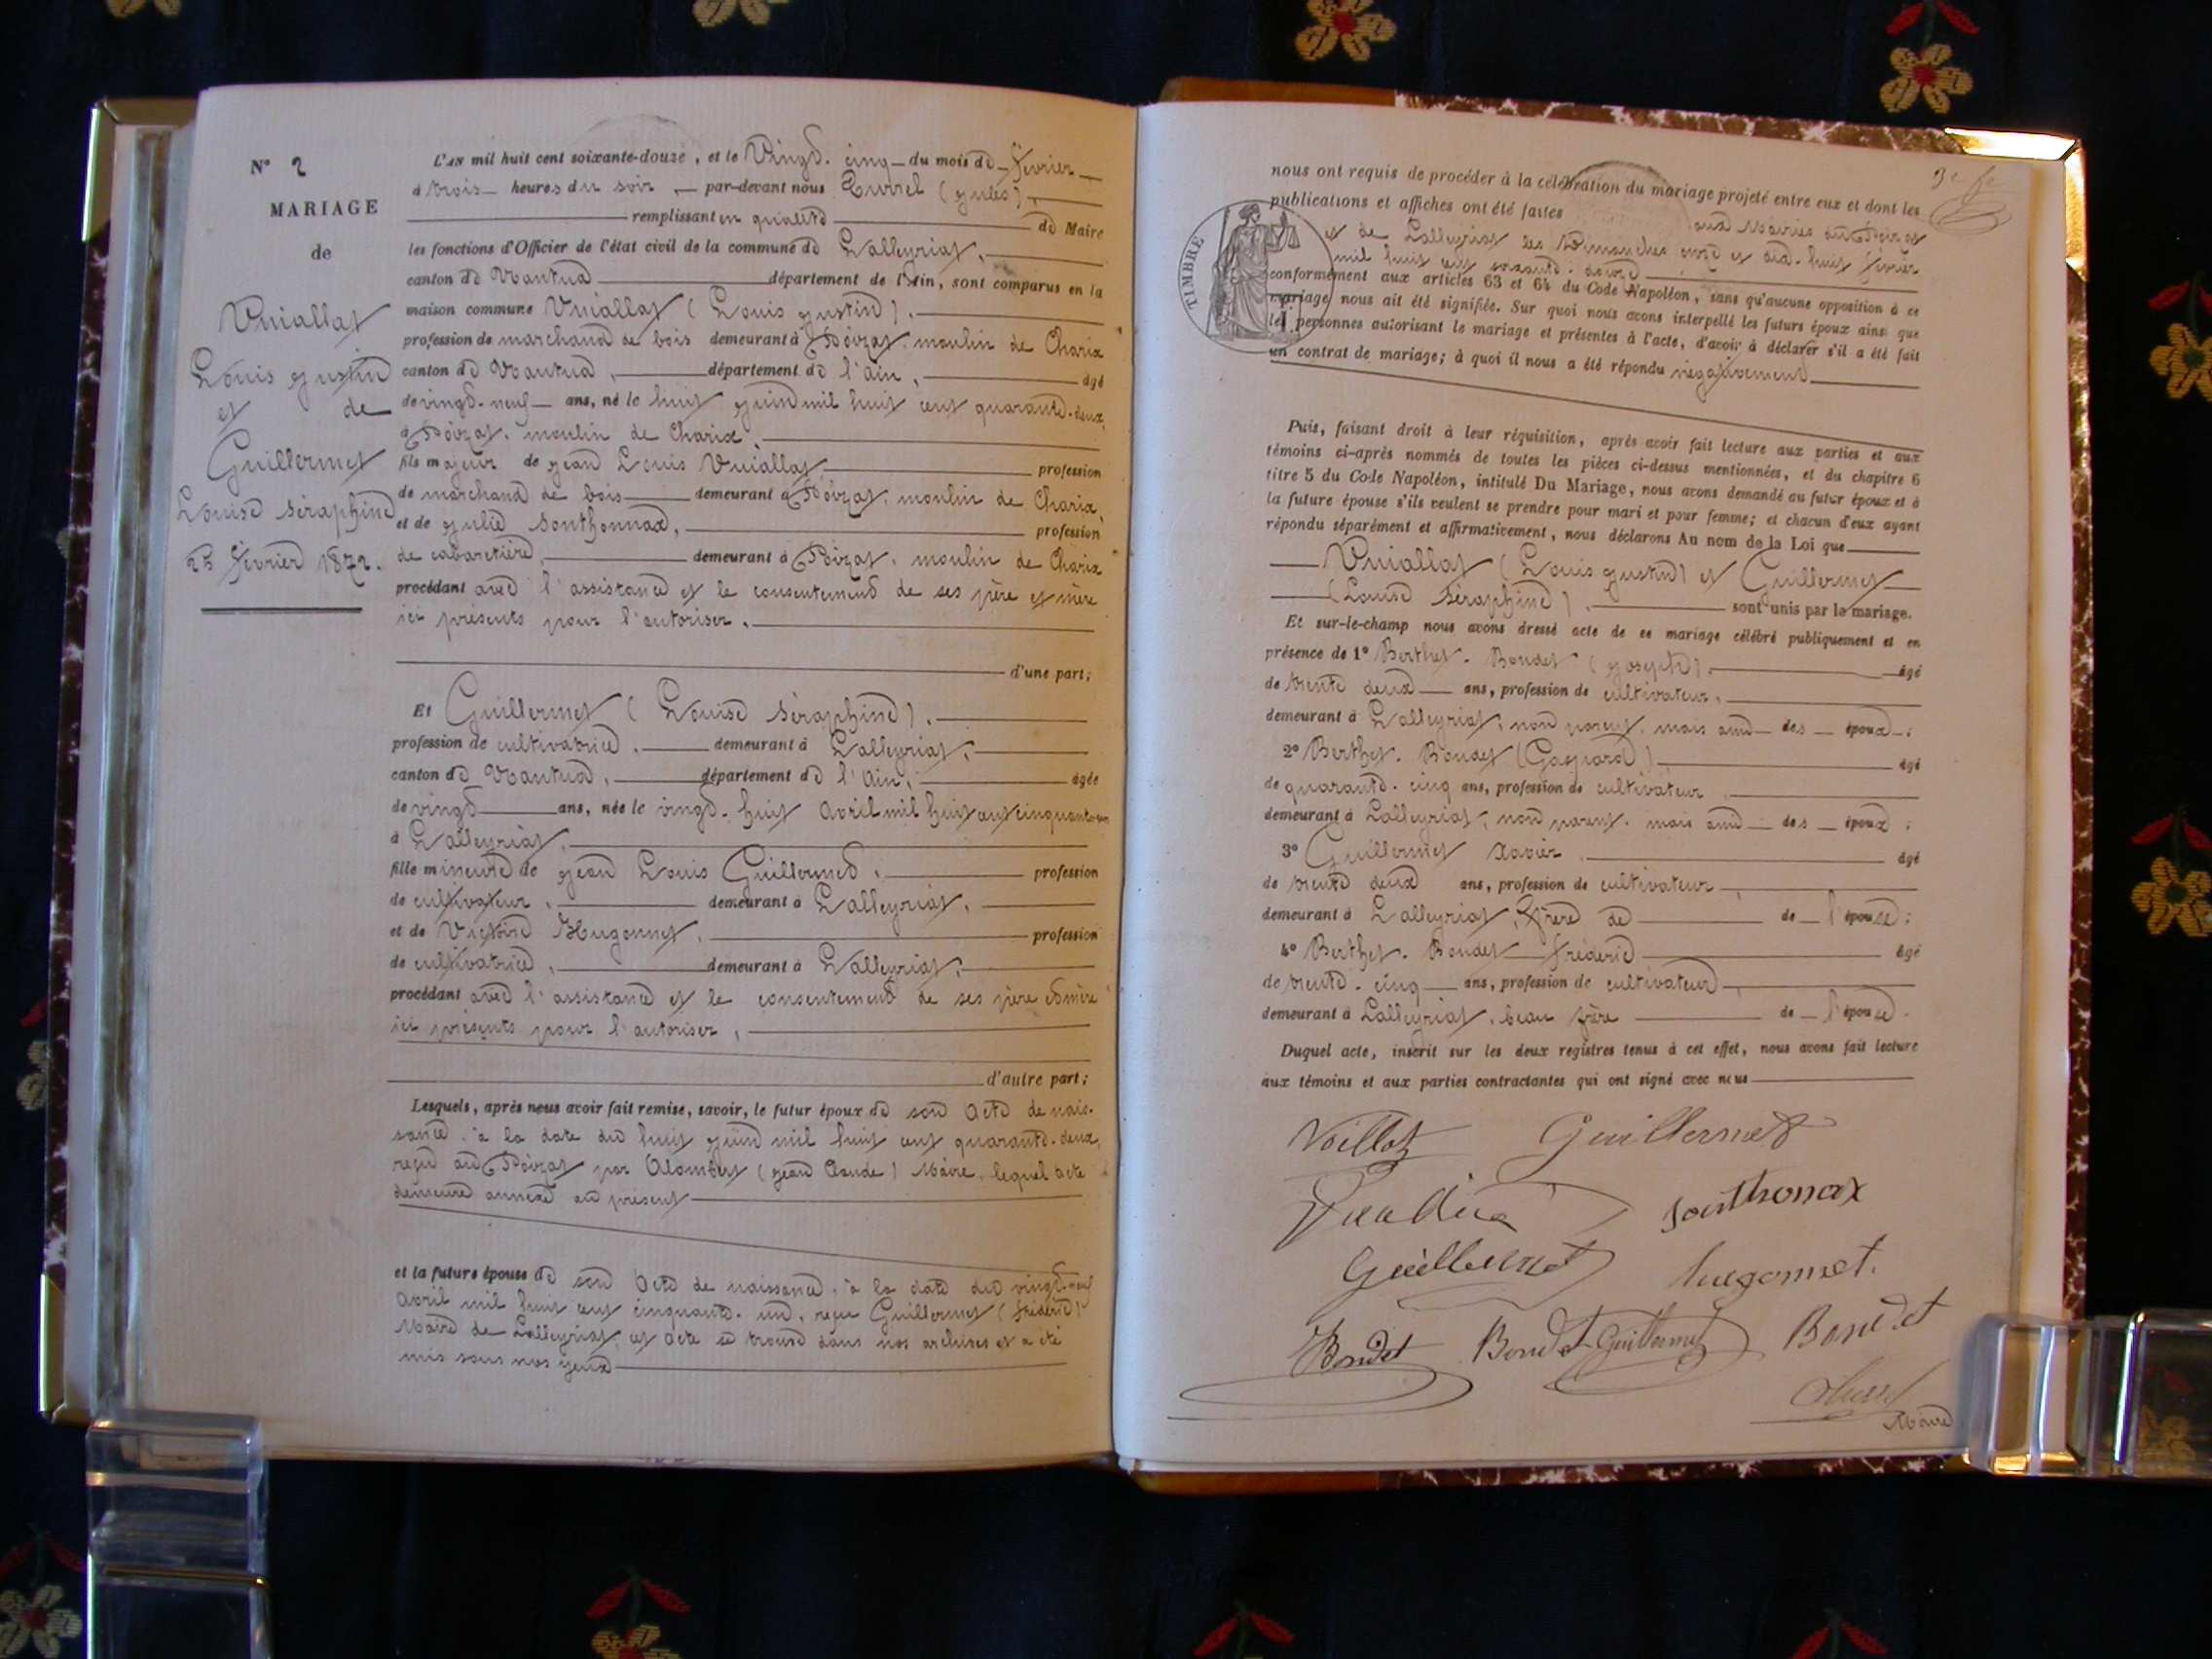 N° 2
MARIAGE
de
Vuiallat
Louis Justin
et de
Guillermet
Louise Séraphine
25 février 1872.
L'AN mil huit cent soixante-douze, et le Vingt-cinq du mois de février
à trois heures du soir, par-devant nous Turrel (Jules),
remplissant en qualité de Maire
les fonctions d'Officier de l'état civil de la commune de Lalleyriat,
canton de Nantua département de l'Ain, sont comparus en la
maison commune Vuiallat (Louis Justin),
profession de marchand de bois demeurant à Poizat, moulin de Charix
canton de Nantua, département de l'Ain, âgé
de vingt-neuf ans, né le huit juin mil huit cent quarante-deux,
à Poizat, moulin de Charix,
fils majeur de Jean Louis Vuiallat, profession
de marchand de bois demeurant à Poizat, moulin de Charix,
et de Julie Sonthonnax, profession
de cabaretière, demeurant à Poizat, moulin de Charix
procédant avec l'assistance et le consentement de ses père et mère
ici présents pour l'autoriser,
d'une part;
Et Guillermet (Louise Séraphine),
profession de cultivatrice, demeurant à Lalleyriat,
canton de Nantua, département de l'Ain, âgée
de vingt ans, née le vingt-huit Avril mil huit cent cinquante-un
à Lalleyriat,
fille mineure de Jean Louis Guillermet, profession
de cultivateur, demeurant à Lalleyriat,
et de Victoire Hugonnet, profession
de cultivatrice, demeurant à Lalleyriat,
procédant avec l'assistance et le consentement de ses père et mère
ici présents pour l'autoriser,
d'autre part;
Lesquels, après nous avoir fait remise, savoir, le futur époux de son acte de nais-
sance, à la date du huit juin mil huit cent quarante-deux,
reçu au Poizat par Alombert (Jean Claude) Maire, lequel acte
demeure annexé au présent
et la future épouse de son acte de naissance, à la date du vingt-neuf
Avril mil huit cent cinquante-un, reçu Guillermet (frédéric)
Maire de Lalleyriat, cet acte se trouve dans nos archives et a été
mis sous nos yeux
nous ont requis de procéder à la célébration du mariage projeté entre eux et dont les
publications et affiches ont été faites aux Mairies du Poizat
et de Lalleyriat les Dimanches onze et dix-huit février
mil huit cent soixante-douze
conformément aux articles 63 et 64 du Code Napoléon, sans qu'aucune opposition à ce
mariage nous ait été signifiée. Sur quoi nous avons interpellé les futurs époux ainsi que
les personnes autorisant le mariage et présentes à l'acte, d'avoir à déclarer s'il a été fait
un contrat de mariage; à quoi il nous a été répondu négativement
TIMBRE
Puis, faisant droit à leur réquisition, après avoir fait lecture aux parties et aux
témoins ci-après nommés de toutes les pièces ci-dessus mentionnées, et du chapitre 6
titre 5 du Code Napoléon, intitulé Du Mariage, nous avons demandé au futur époux et à
la future épouse s'ils veulent se prendre pour mari et pour femme; et chacun d'eux ayant
répondu séparément et affirmativement, nous déclarons Au nom de la Loi que
Vuiallat (Louis Justin) et Guillermet
(Louise Séraphine), sont unis par le mariage.
Et sur-le-champ nous avons dressé acte de ce mariage célébré publiquement et en
présence de 1° Berthet-Bondet (Joseph), âgé
de trente deux ans, profession de cultivateur,
demeurant à Lalleyriat, non parent, mais ami des époux;
2° Berthet-Bondet (Gaspard), âgé
de quarante-cinq ans, profession de cultivateur,
demeurant à Lalleyriat, non parent, mais ami des époux;
3° Guillermet Xavier, âgé
de trente deux ans, profession de cultivateur,
demeurant à Lalleyriat, frère de de l'épouse;
4° Berthet-Bondet frédéric âgé
de trente-cinq ans, profession de cultivateur,
demeurant à Lalleyriat, beau frère de l'épouse.
Duquel acte, inscrit sur les deux registres tenus à cet effet, nous avons fait lecture
aux témoins et aux parties contractantes qui ont signé avec nous
Guillermet
Sonthonax
Guillermet hugonnet.
Bondet Bondet Guillermet Bondet
Maire